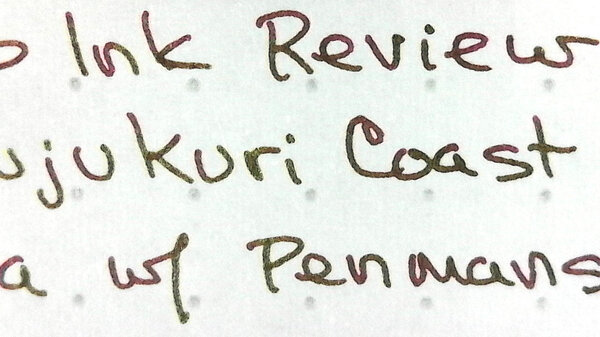 o Ink Review
ujukuri Coast
a w/ Penmans